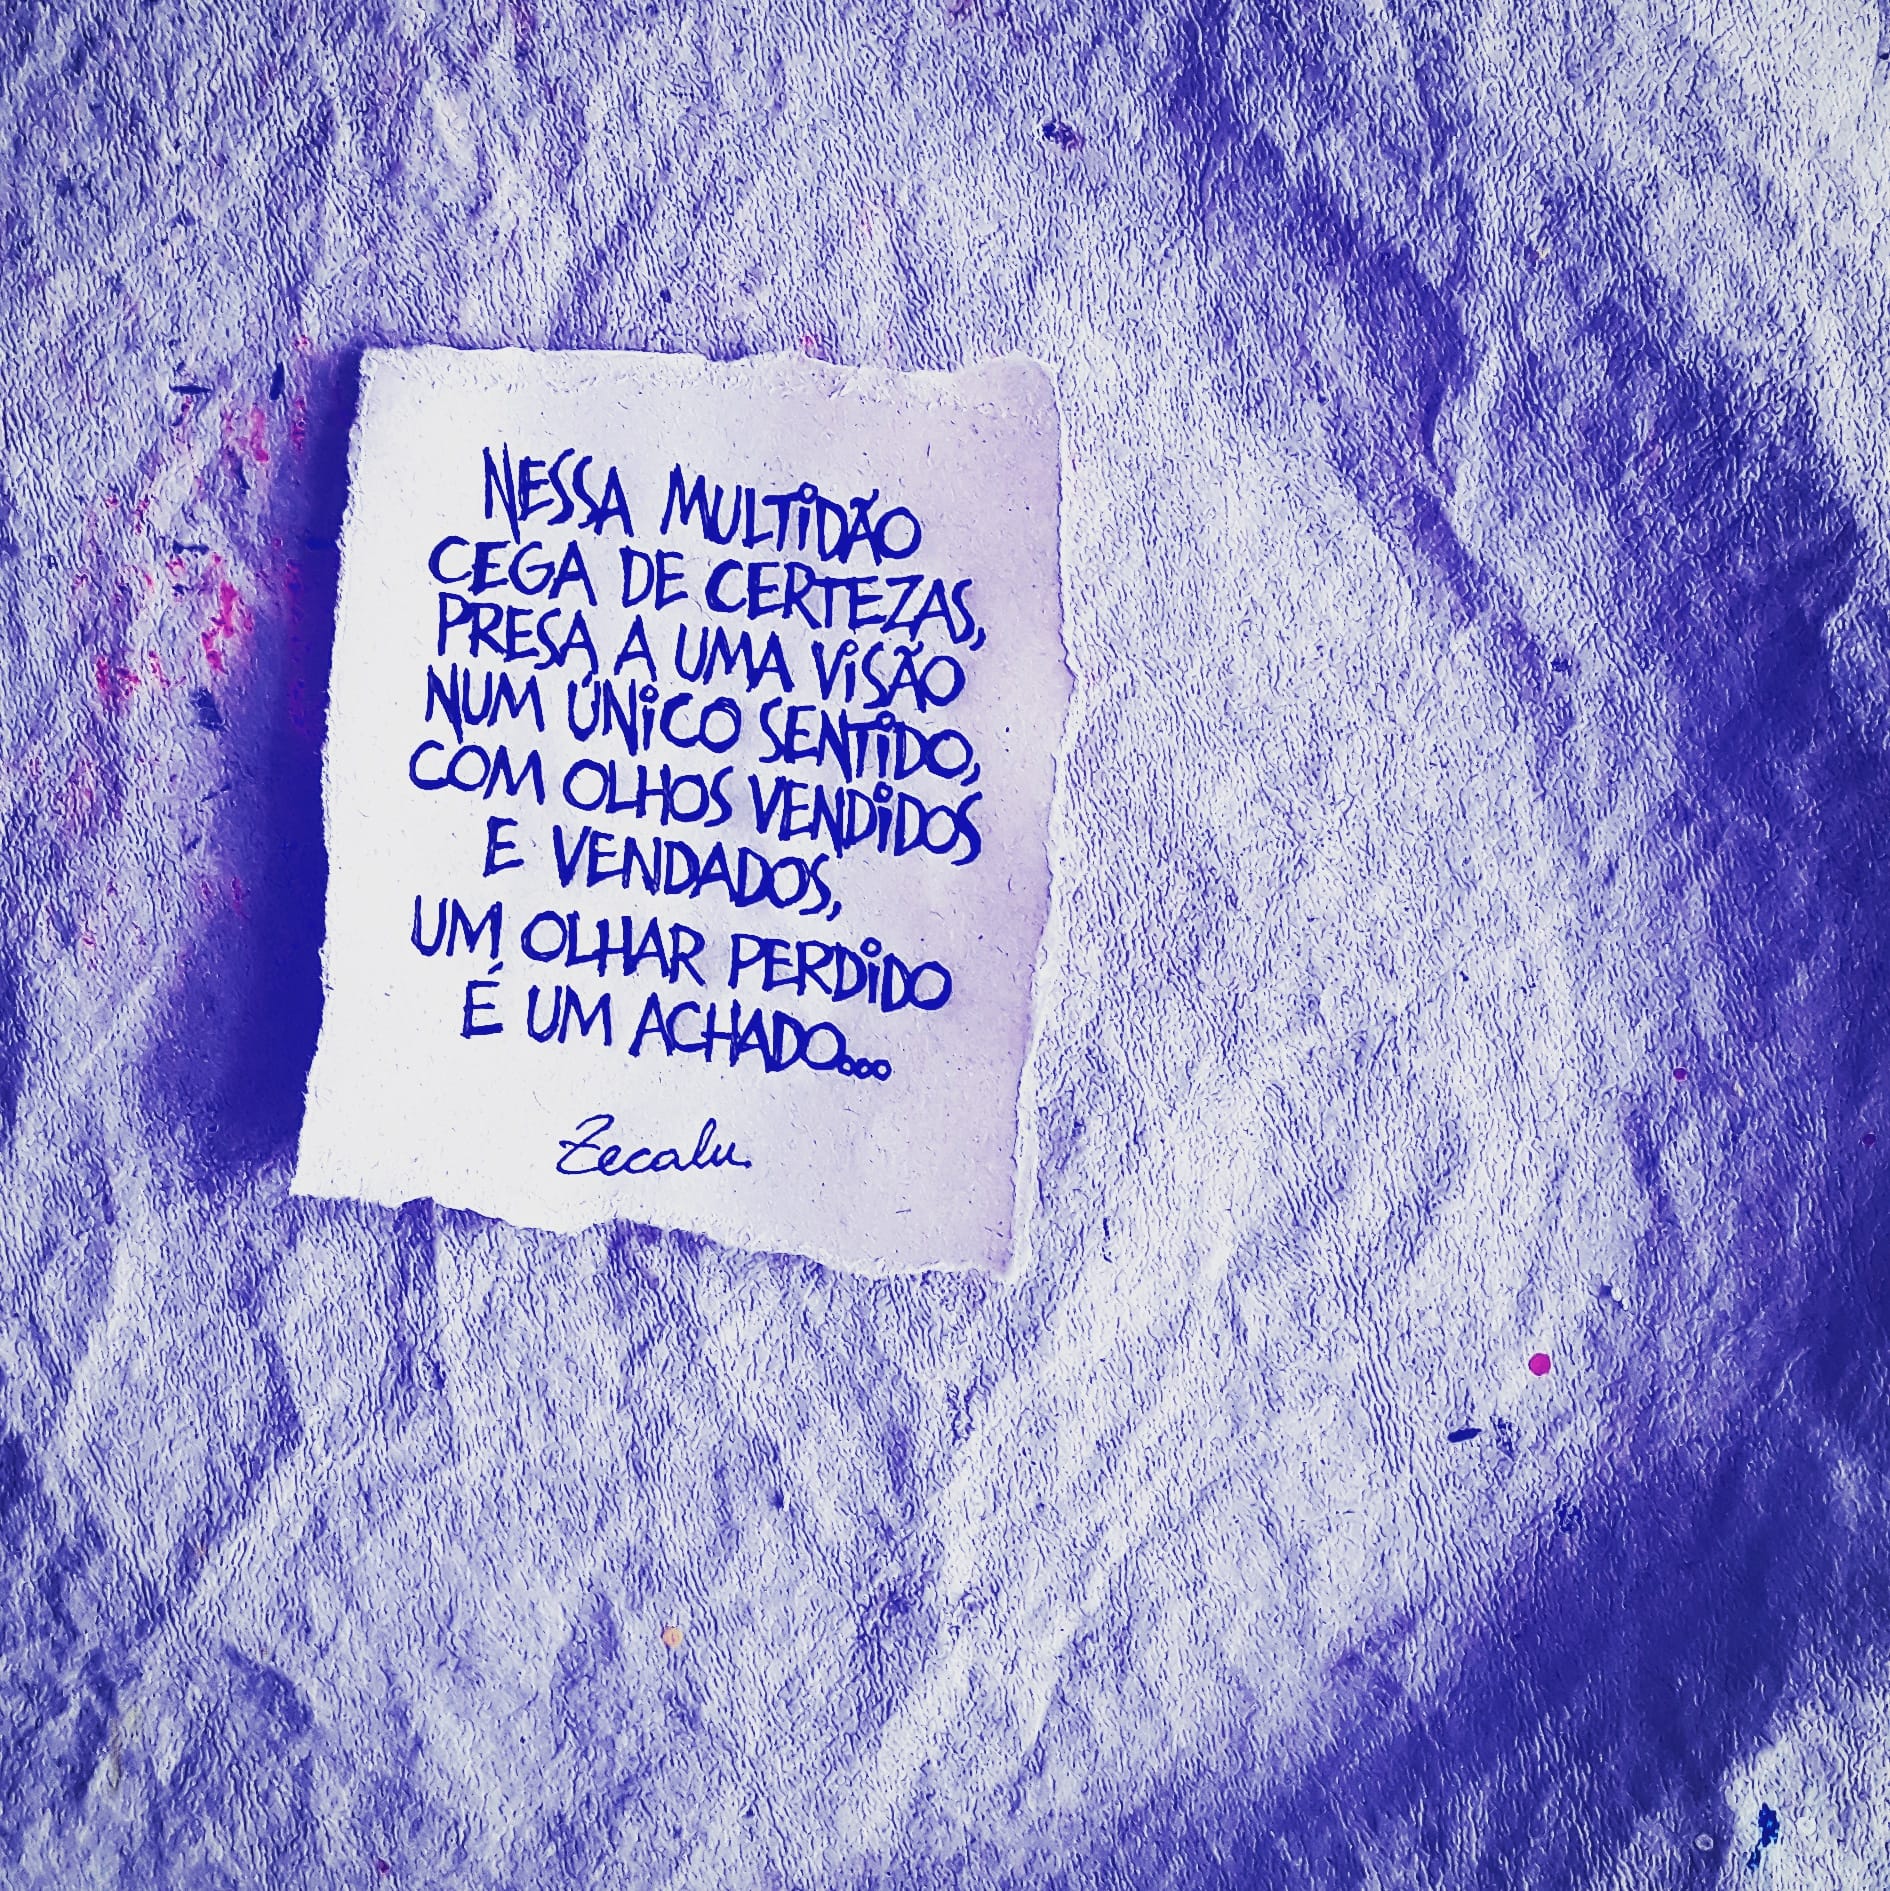 NESSA MULTIDÃO
CEGA DE CERTEZAS,
PRESA A UMA VISÃO
NUM ÚNICO SENTIDO,
COM OLHOS VENDIDOS
E VENDADOS,
UM OLHAR PERDIDO
É UM ACHADO...
Zecalu